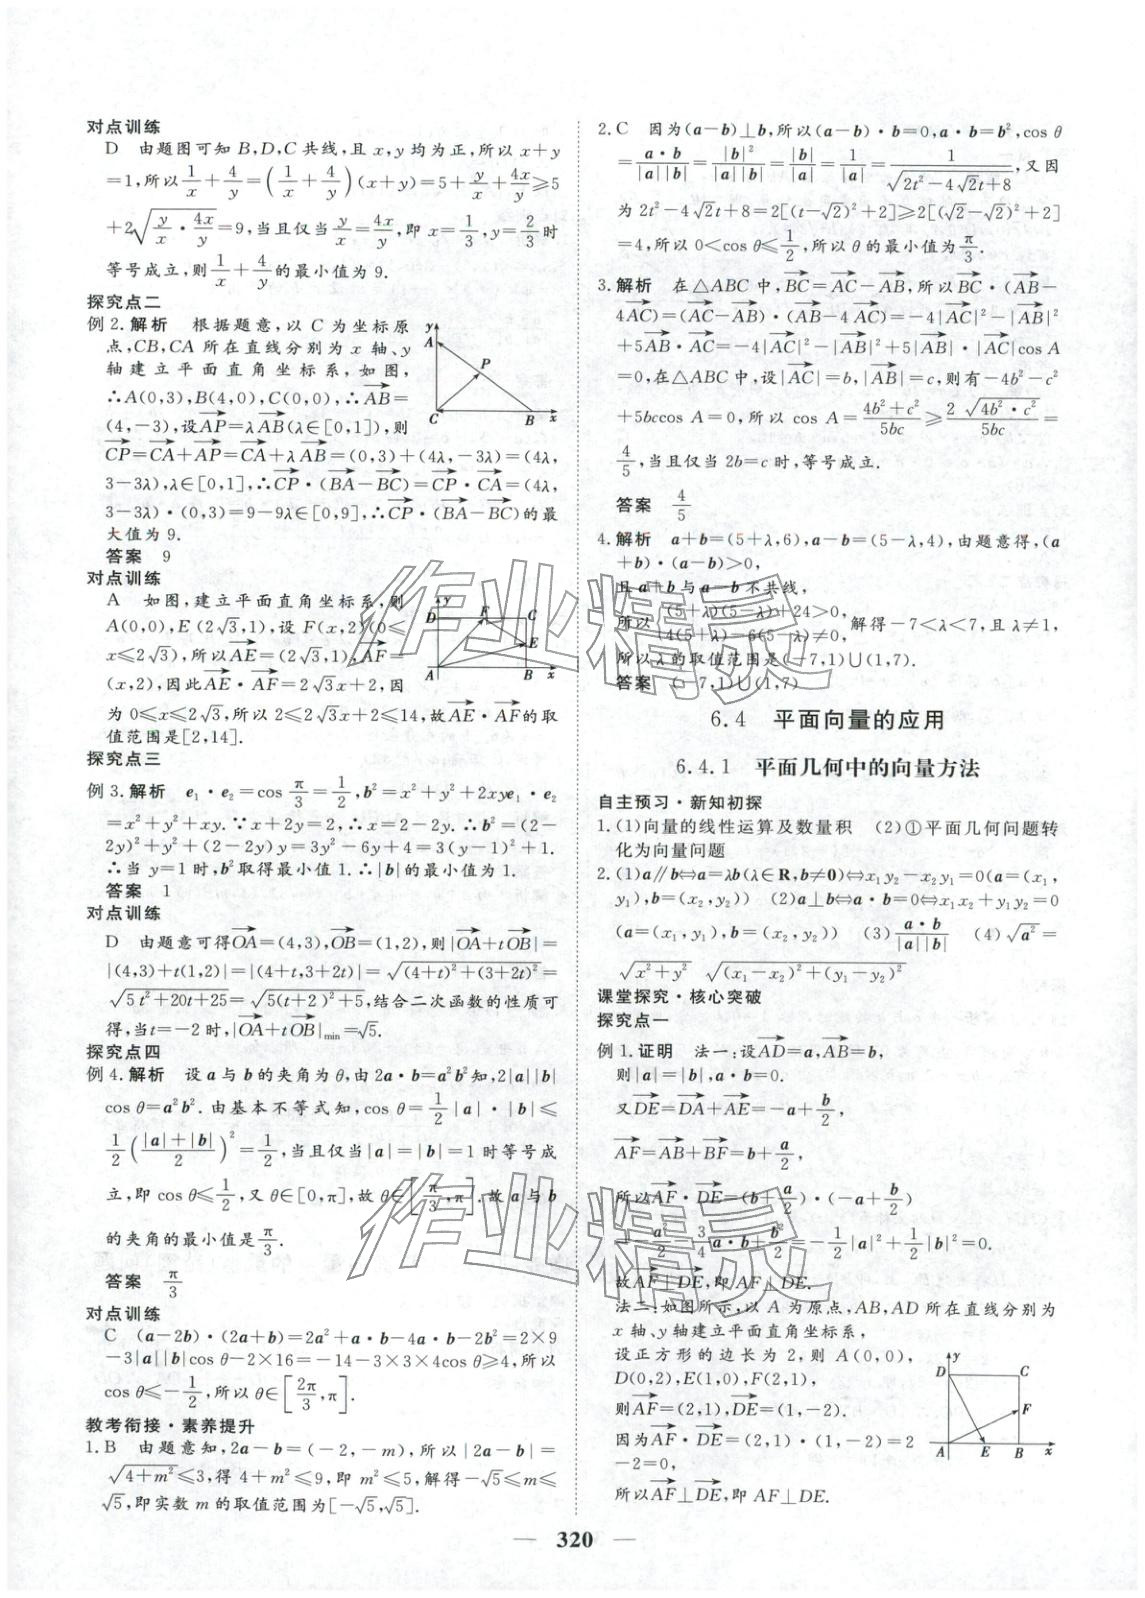 对点训练
D 由题图可知 B,D,C 共线,且 x,y 均为正,所以 x+y
=1,所以1/x+4/y=(1/x+4/y)(x+y)=5+y/x+4x/y≥5
+2√(y/x·4x/y)=9,当且仅当y/x=4x/y,即 x=1/3,y=2/3时
等号成立,则1/x+4/y的最小值为 9.
探究点二
例 2.解析 根据题意,以 C 为坐标原
点,CB,CA 所在直线分别为 x 轴、y
轴建立平面直角坐标系,如图,
∴A(0,3),B(4,0),C(0,0),∴AB→=
(4,-3),设AP→=λAB→(λ∈[0,1]),则
CP→=CA→+AP→=CA→+λAB→=(0,3)+(4λ,-3λ)=(4λ,
3-3λ),λ∈[0,1],∴CP→·(BA→-BC→)=CP→·CA→=(4λ,
3-3λ)·(0,3)=9-9λ∈[0,9],∴CP→·(BA→-BC→)的最
大值为 9.
答案 9
y
A
P
C
B
x
对点训练
A 如图,建立平面直角坐标系,则
A(0,0),E(2√3,1),设 F(x,2)(0≤
x≤2√3),所以AE→=(2√3,1),AF→=
(x,2),因此AE→·AF→=2√3x+2,因
为 0≤x≤2√3,所以 2≤2√3x+2≤14,故AE→·AF→的取
值范围是[2,14].
y
D
F
C
E
A
B
x
探究点三
例 3.解析 e₁·e₂=cos π/3=1/2,b²=x²+y²+2xye₁·e₂
=x²+y²+xy.∵x+2y=2,∴x=2-2y.∴b²=(2-
2y)²+y²+(2-2y)y=3y²-6y+4=3(y-1)²+1.
∴当 y=1 时,b²取得最小值 1.∴|b|的最小值为 1.
答案 1
对点训练
D 由题意可得OA→=(4,3),OB→=(1,2),则|OA→+tOB→|=
|(4,3)+t(1,2)|=|(4+t,3+2t)|=√((4+t)²+(3+2t)²)=
√(5t²+20t+25)=√(5(t+2)²+5),结合二次函数的性质可
得,当t=-2 时,|OA→+tOB→|min=√5.
探究点四
例 4.解析 设 a 与 b 的夹角为 θ,由 2a·b=a²b²知,2|a||b|
cos θ=a²b².由基本不等式知,cos θ=1/2|a|·|b|≤
1/2((|a|+|b|)/2)²=1/2,当且仅当|a|=|b|=1 时等号成
立,即 cos θ≤1/2,又 θ∈[0,π],故 θ∈[π/3,π].故 a 与 b
的夹角的最小值是π/3.
答案 π/3
对点训练
C (a-2b)·(2a+b)=2a²+a·b-4a·b-2b²=2×9
-3|a||b|cos θ-2×16=-14-3×3×4cos θ≥4,所以
cos θ≤-1/2,所以 θ∈[2π/3,π].
教考衔接·素养提升
1.B 由题意知,2a-b=(-2,-m),所以|2a-b|=
√(4+m²)≤3,得 4+m²≤9,即 m²≤5,解得-√5≤m≤
√5,即实数 m 的取值范围为[-√5,√5].
2.C 因为(a-b)⊥b,所以(a-b)·b=0,a·b=b²,cos θ
=a·b/|a||b|=|b|²/|a||b|=|b|/|a|=1/|a|=1/√(2t²-4√2t+8),又因
为 2t²-4√2t+8=2[(t-√2)²+2]≥2[(√2-√2)²+2]
=4,所以 0<cos θ≤1/2,所以 θ 的最小值为π/3.
3.解析 在△ABC 中,BC→=AC→-AB→,所以BC→·(AB→-
4AC→)=(AC→-AB→)·(AB→-4AC→)=-4|AC→|²-|AB→|²
+5AB→·AC→=-4|AC→|²-|AB→|²+5|AB→|·|AC→|cos A
=0,在△ABC 中,设|AC→|=b,|AB→|=c,则有-4b²-c²
+5bccos A=0,所以 cos A=(4b²+c²)/5bc≥2√(4b²·c²)/5bc=
4/5,当且仅当 2b=c 时,等号成立.
答案 4/5
4.解析 a+b=(5+λ,6),a-b=(5-λ,4),由题意得,(a
+b)·(a-b)>0,
且 a+b 与 a-b 不共线,
所以{(5+λ)(5-λ)+24>0,
4(5+λ)-6(5-λ)≠0,解得-7<λ<7,且 λ≠1,
所以 λ 的取值范围是(-7,1)∪(1,7).
答案 (-7,1)∪(1,7)
6.4 平面向量的应用
6.4.1 平面几何中的向量方法
自主预习·新知初探
1.(1)向量的线性运算及数量积 (2)①平面几何问题转
化为向量问题
2.(1)a∥b⇔a=λb(λ∈R,b≠0)⇔x₁y₂-x₂y₁=0(a=(x₁,
y₁),b=(x₂,y₂)) (2)a⊥b⇔a·b=0⇔x₁x₂+y₁y₂=0
(a=(x₁,y₁),b=(x₂,y₂)) (3)a·b/|a||b| (4)√a²=
√(x²+y²) √((x₁-x₂)²+(y₁-y₂)²)
课堂探究·核心突破
探究点一
例 1.证明 法一:设AD→=a,AB→=b,
则|a|=|b|,a·b=0.
又DE→=DA→+AE→=-a+b/2,
AF→=AB→+BF→=b+a/2,
所以AF→·DE→=(b+a/2)·(-a+b/2)
=-a²/2-3/4a·b+b²/2=-1/2|a|²+1/2|b|²=0.
故AF→⊥DE→,即 AF⊥DE.
法二:如图所示,以 A 为原点,AB,AD 所在直线分别为
x 轴、y 轴建立平面直角坐标系,
设正方形的边长为 2,则 A(0,0),
D(0,2),E(1,0),F(2,1),
则AF→=(2,1),DE→=(1,-2).
因为AF→·DE→=(2,1)·(1,-2)=2
-2=0,
所以AF→⊥DE→,即 AF⊥DE.
y
D
C
F
A
E
B
x
320
作业精灵
作业精灵